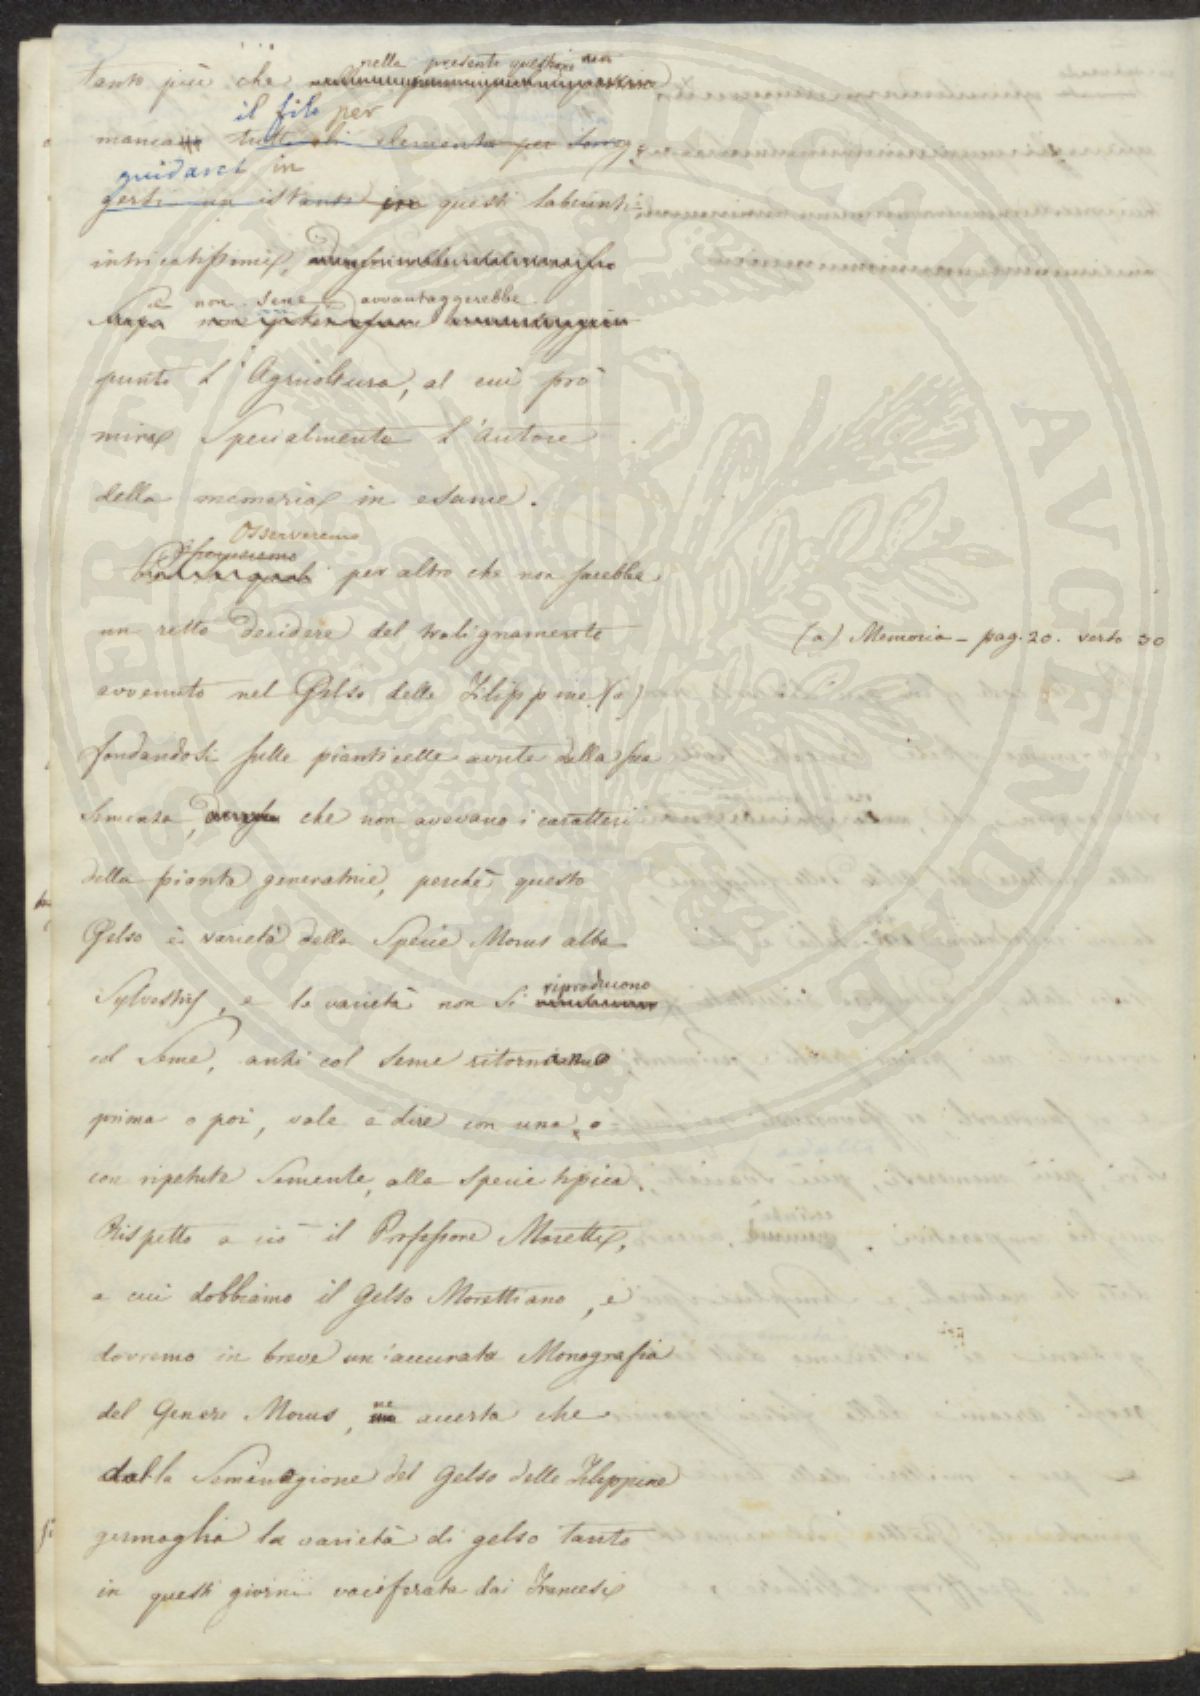 nella presente questione non
tanto più che
il filo per
manca tutti gli elementi per sorreg-
guidarci in
gerli un istante in questi labirinti
intricatissimi,
e non sene avvantaggerebbe
punto l'Agricoltura, al cui prò
mira specialmente l'autore
della memoria in esame.
Osserveremo
per altro che non sarebbe
un retto decidere del tralignamento
(a) Memoria - pag. 20. verso 30
avvenuto nel Gelso delle Filippine (a)
fondandosi sulle pianticelle avute dalla sua
semenza, che non avevano i caratteri
della pianta generatrice, perchè questo
Gelso è varietà della Specie Morus alba
Sylvestris, e le varietà non si riproducono
col seme, anzi col seme ritornano
prima o poi, vale a dire con una, o
con ripetute semente, alla specie tipica.
Rispetto a ciò il Professore Moretti,
a cui dobbiamo il Gelso Morettiano, e
dovremo in breve un'accurata Monografia
del Genere Morus, ne accerta che
dalla semenzagione del Gelso delle Filippine
germoglia la varietà di gelso tanto
in questi giorni vociferata dai Francesi